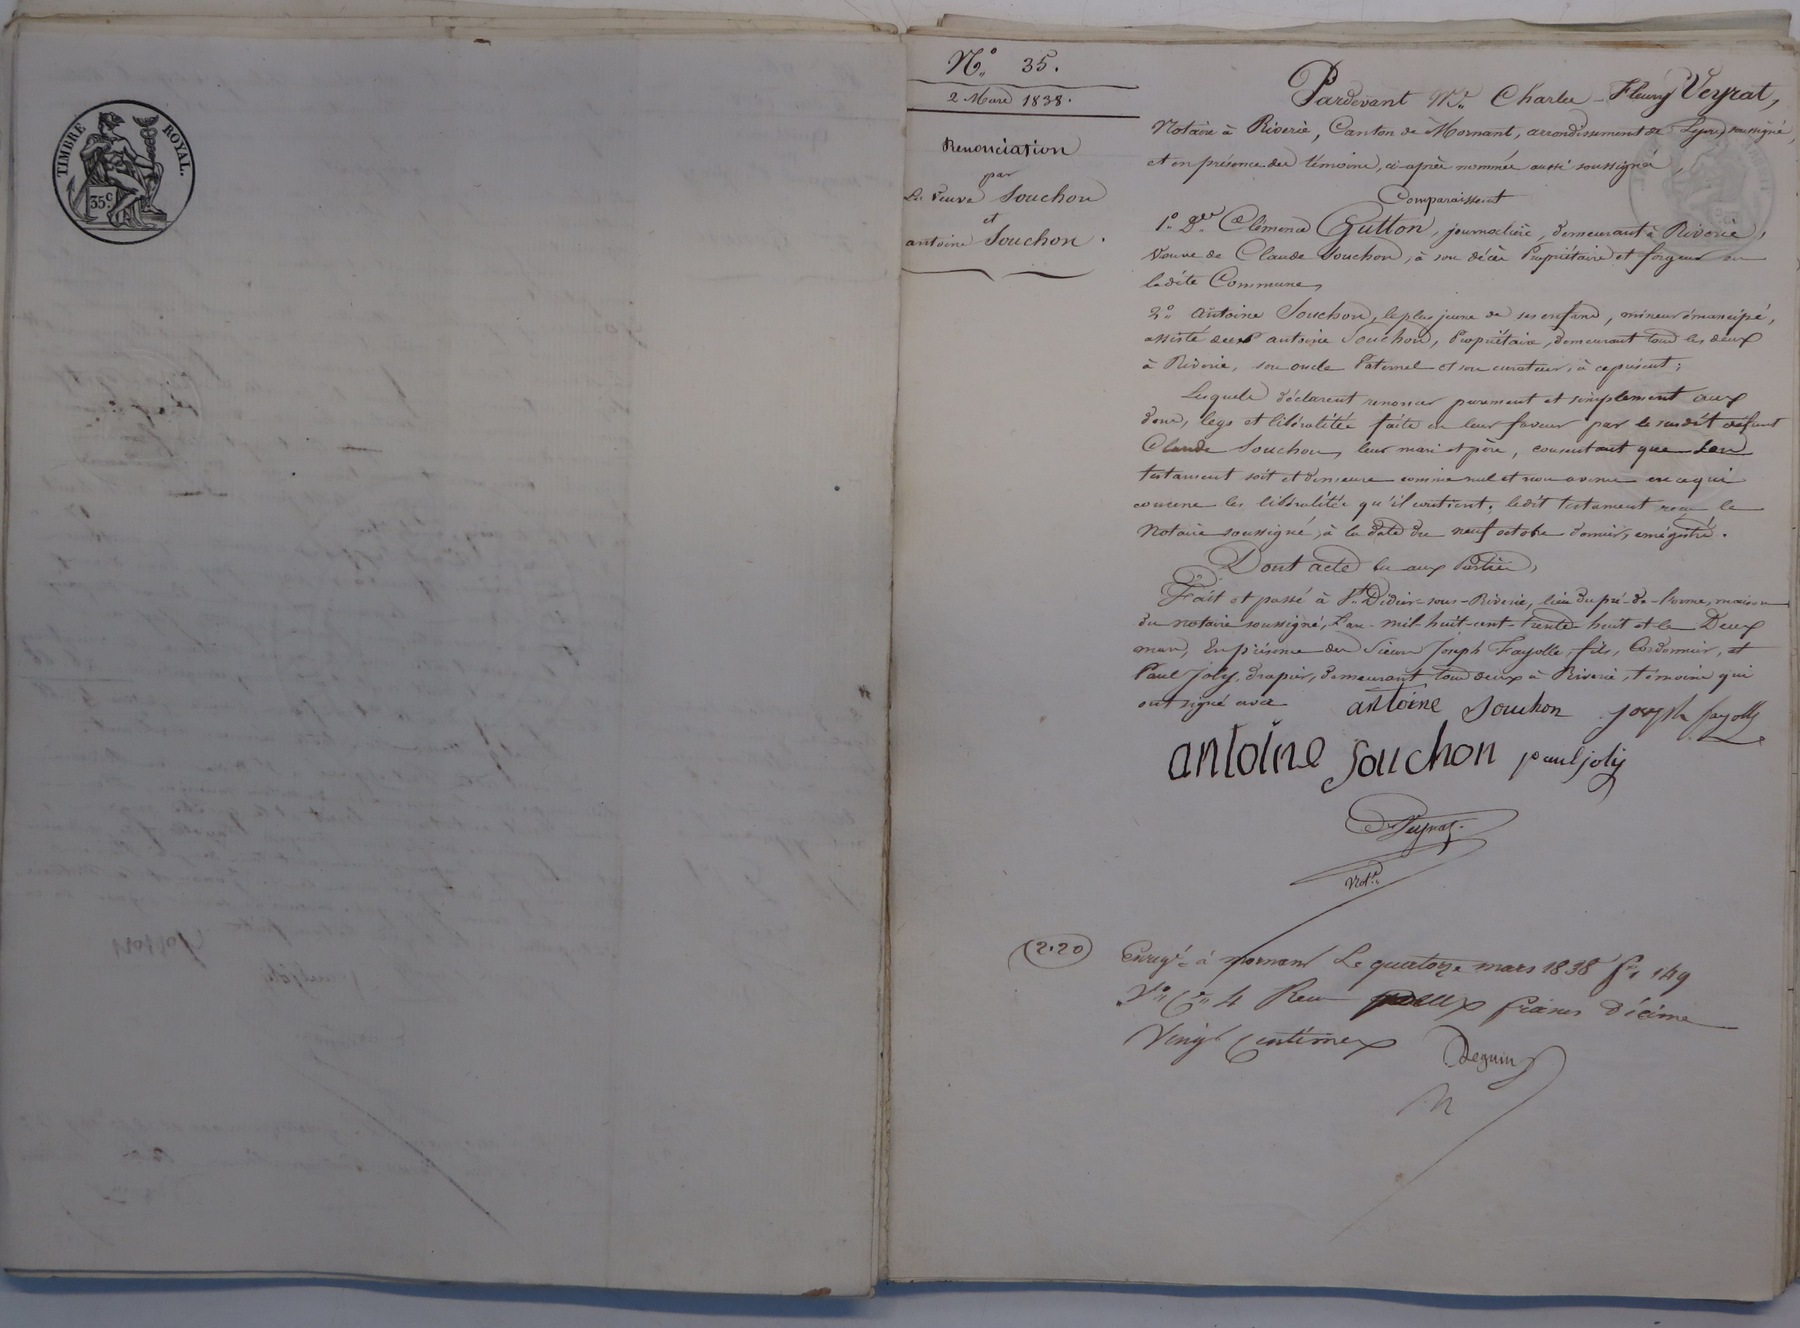 TIMBRE ROYAL.
35 c
N.° 35.
2 Mars 1838.
Renonciation
par
La Veuve Souchon
et
antoine Souchon.
Pardevant M.e Charles-Fleury Veyrat,
Notaire à Riverie, Canton de Mornant, arrondissement de Lyon, soussigné,
et en présence des témoins, ci-après nommés aussi soussignés,
Comparaissent
1.° D.e Clémence Gutton, journalière, demeurant à Riverie,
Veuve de Claude Souchon, à son décès Propriétaire et forgeur en
ladite Commune,
2.° Antoine Souchon, le plus jeune de ses enfans, mineur émancipé,
assisté de antoine Souchon, Propriétaire, demeurant tous les deux
à Riverie, son oncle Paternel et son curateur, à ce présent;
Lesquels déclarent renoncer purement et simplement aux
dons, legs et libéralités faits en leur faveur par le susdit défunt
Claude Souchon, leur mari et père, consentant que son
testament soit et demeure comme nul et non avenu en ce qui
concerne les libéralités qu'il contient; ledit testament reçu le
Notaire soussigné, à la date du neuf octobre dernier, enregistré.
Dont acte lu aux Parties,
Fait et passé à St. Didier-sous-Riverie, lieu du pré-de-l'orme, maison
du notaire soussigné, L'an-mil-huit-cent-trente-huit et le Deux
mars, En présence des Sieurs Joseph Fayolle, fils, Cordonnier, et
Paul Joly, drapier, demeurant tous deux à Riverie, témoins qui
ont signé avec antoine Souchon joseph fayolle
antoine souchon paul joly
Veyrat.
Not.re
2.20 Enregé. à mornant Le quatorze mars 1838 f° 149
V.° C.e 4 Reçu deux francs décime
Vingt Centimes Deguin